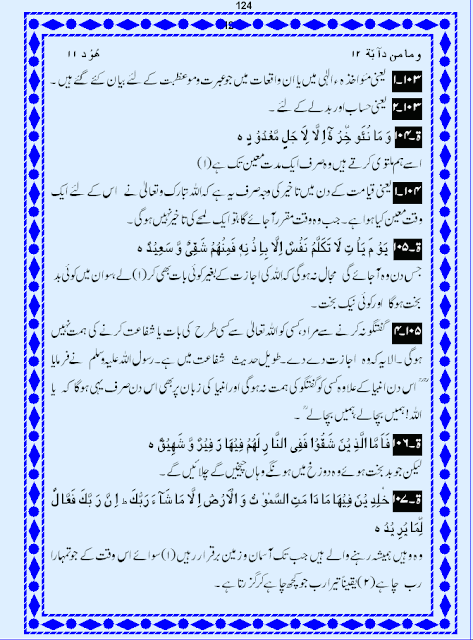 124
وما من دآبۃ ۱۲ ھُوْد ۱۱
۱۰۳۔۱ یعنی مواخذہء الٰہی میں یا ان واقعات میں جو عبرت و موعظبت کے لئے بیان کئے گئے ہیں ۔
۱۰۳۔۲ یعنی حساب اور بدلے کے لئے ۔
ق۔۱۰۴ وَ مَا نُئَو خِّرُ ہٗٓ اِلَّا لِاَ جَلٍ مَّعْدُوْدٍ ہ
اسے ہم ملتوی کرتے ہیں وہ صرف ایک مدت معین تک ہے (۱)
۱۰۴۔۱ یعنی قیامت کے دن میں تاخیر کی وجہ صرف یہ ہے کہ اللہ تبارک و تعالیٰ نے اس کے لئے ایک
وقت معین کیا ہوا ہے۔ جب وہ وقت مقرر آ جائے گا تو ایک لمحے کی تاخیر نہیں ہوگی۔
ق۔۱۰۵ یَوْ مَ یَاْ تِ لَا تَکَلَّمُ نَفْسٌ اِلَّا بِاِذْ نِہٖ فَمِنْھُمْ شَقِیٌّ وَّ سَعِیْدٌ ہ
جس دن وہ آ جائے گی مجال نہ ہوگی کہ اللہ کی اجازت کے بغیر کوئی بات بھی کر (۱) لے سو ان میں کوئی بد
بخت ہوگا اور کوئی نیک بخت۔
۱۰۵۔۴ گفتگو نہ کرنے سے مراد، کسی کو اللہ تعالیٰ سے کسی طرح کی بات یا شفاعت کرنے کی ہمت نہیں
ہوگی۔ الا یہ کہ وہ اجازت دے دے۔ طویل حدیث شفاعت میں ہے۔ رسول اللہ علیہ وسلم نے فرمایا
اس دن انبیا کے علاوہ کسی کو گفتگو کی ہمت نہ ہوگی اور انبیا کی زبان پر بھی اس دن صرف یہی ہوگا کہ یا
اللہ! ہمیں بچا لے ہمیں بچا لے ۔
ق۔۱۰۶ فَاَ مَّا الَّذِ یْنَ شَقُوْا فَفِی النَّا رِ لَھُمْ فِیْھَا زَفِیْرٌ وَّ شَھِیْقٌ ہ
لیکن جو بد بخت ہوئے وہ دوزخ میں ہونگے وہاں چیخیں گے چلائیں گے۔
ق۔۱۰۷ خٰلِدِ یْنَ فِیْھَا مَا دَا مَتِ السَّمٰوٰ تُ وَ الْاَرْضُ اِلَّا مَا شَآ ءَ رَبُّکَ ط اِنَّ رَ بَّکَ فَعَّا لٌ
لِّمَا یُرِ یْدُ ہ
وہ وہیں ہمیشہ رہنے والے ہیں جب تک آسمان و زمین برقرار رہیں (۱) سوائے اس وقت کے جو تمہارا
رب چاہے (۲) یقیناً تیرا رب جو کچھ چاہے کر گزرتا ہے۔